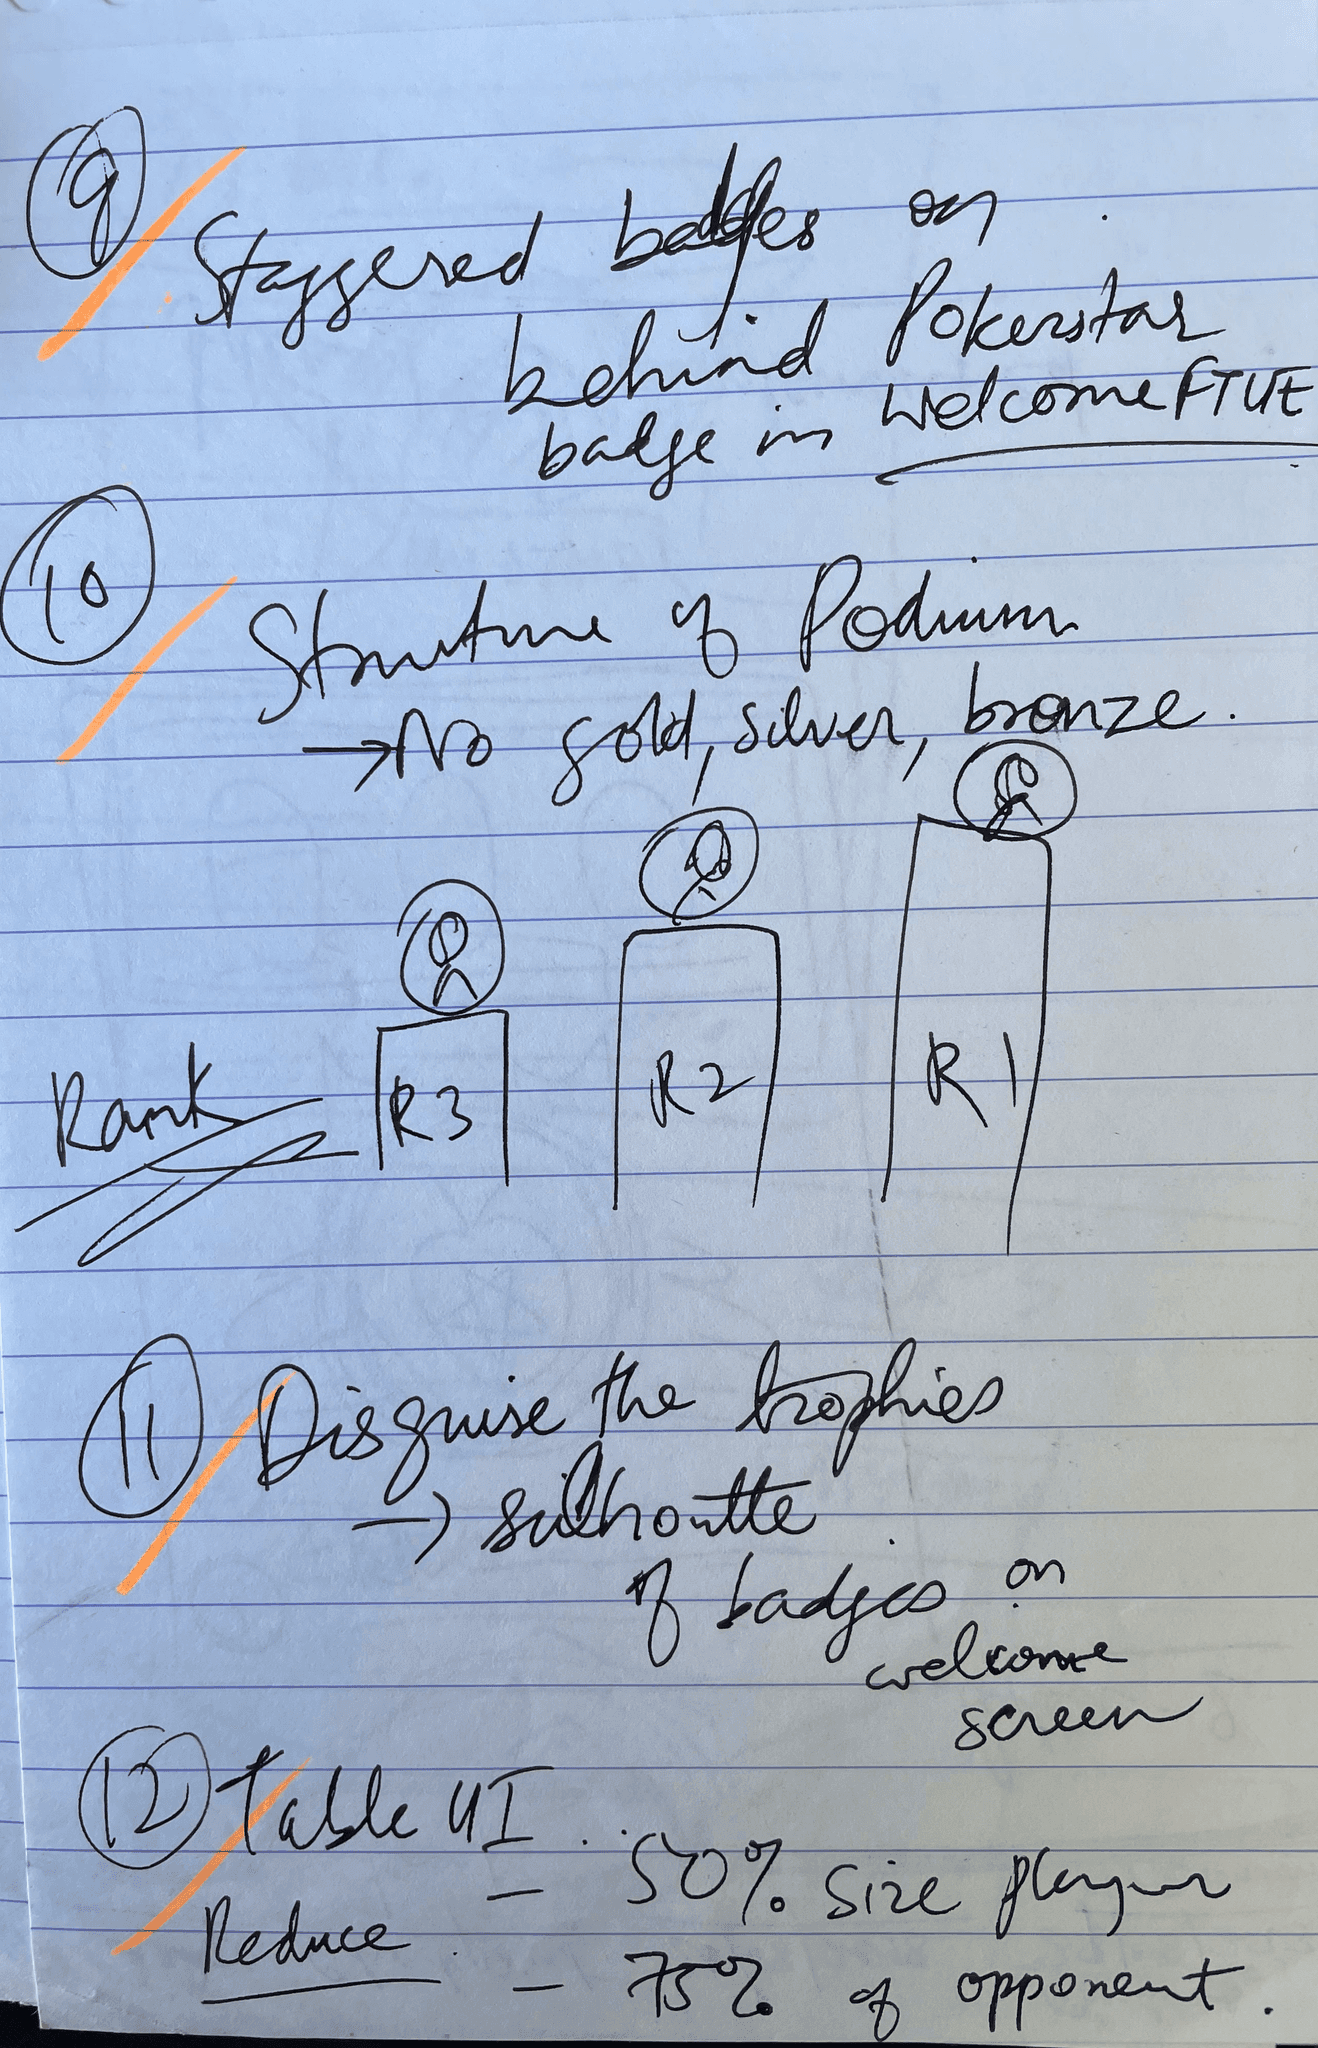 9
Staggered badges on
behind Pokerstar
badge in Welcome FTUE
10
Structure of Podium
→ No gold, silver, bronze.
Rank R3 R2 R1
11 Disguise the trophies
→ silhoutte
of badges on
welcome
screen
12 Table UI
- 50% size player
Reduce
- 75% of opponent.